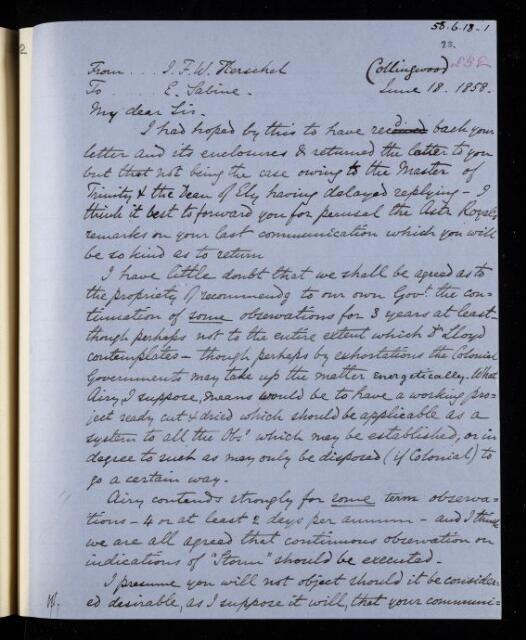 58.6.18-1
2
23.
From . . . J. F. W. Herschel (Collingwood)
To . . . . E. Sabine. June 18. 1858.
My dear Sir.
I had hoped by this to have recd back your
letter and its enclosures & returned the latter to you
but that not being the case owing to the Master of
Trinity & the Dean of Ely having delayed replying - I
think it best to forward you for perusal the Astr Royals
remarks on your last communication which you will
be so kind as to return
I have little doubt that we shall be agreed as to
the propriety of recommendg to our own Govt. the con-
tinuation of some observations for 3 years at least-
though perhaps not to the entire extent which Dr Lloyd
contemplates - though perhaps by exhortations the Colonial
Governments may take up the matter energetically. What
Airy, I suppose, means would be to have a working pro-
ject ready cut & dried which should be applicable as a
system to all the Obs.s which may be established, or in
degree to such as may only be disposed (if Colonial) to
go a certain way.
Airy contends strongly for some term observa-
tions - 4 or at least 2 days per annum - and I think
we are all agreed that continuous obsevation on
indications of "Storm" should be executed.
I presume you will not object should it be consider-
ed desirable, as I suppose it will, that your communi-